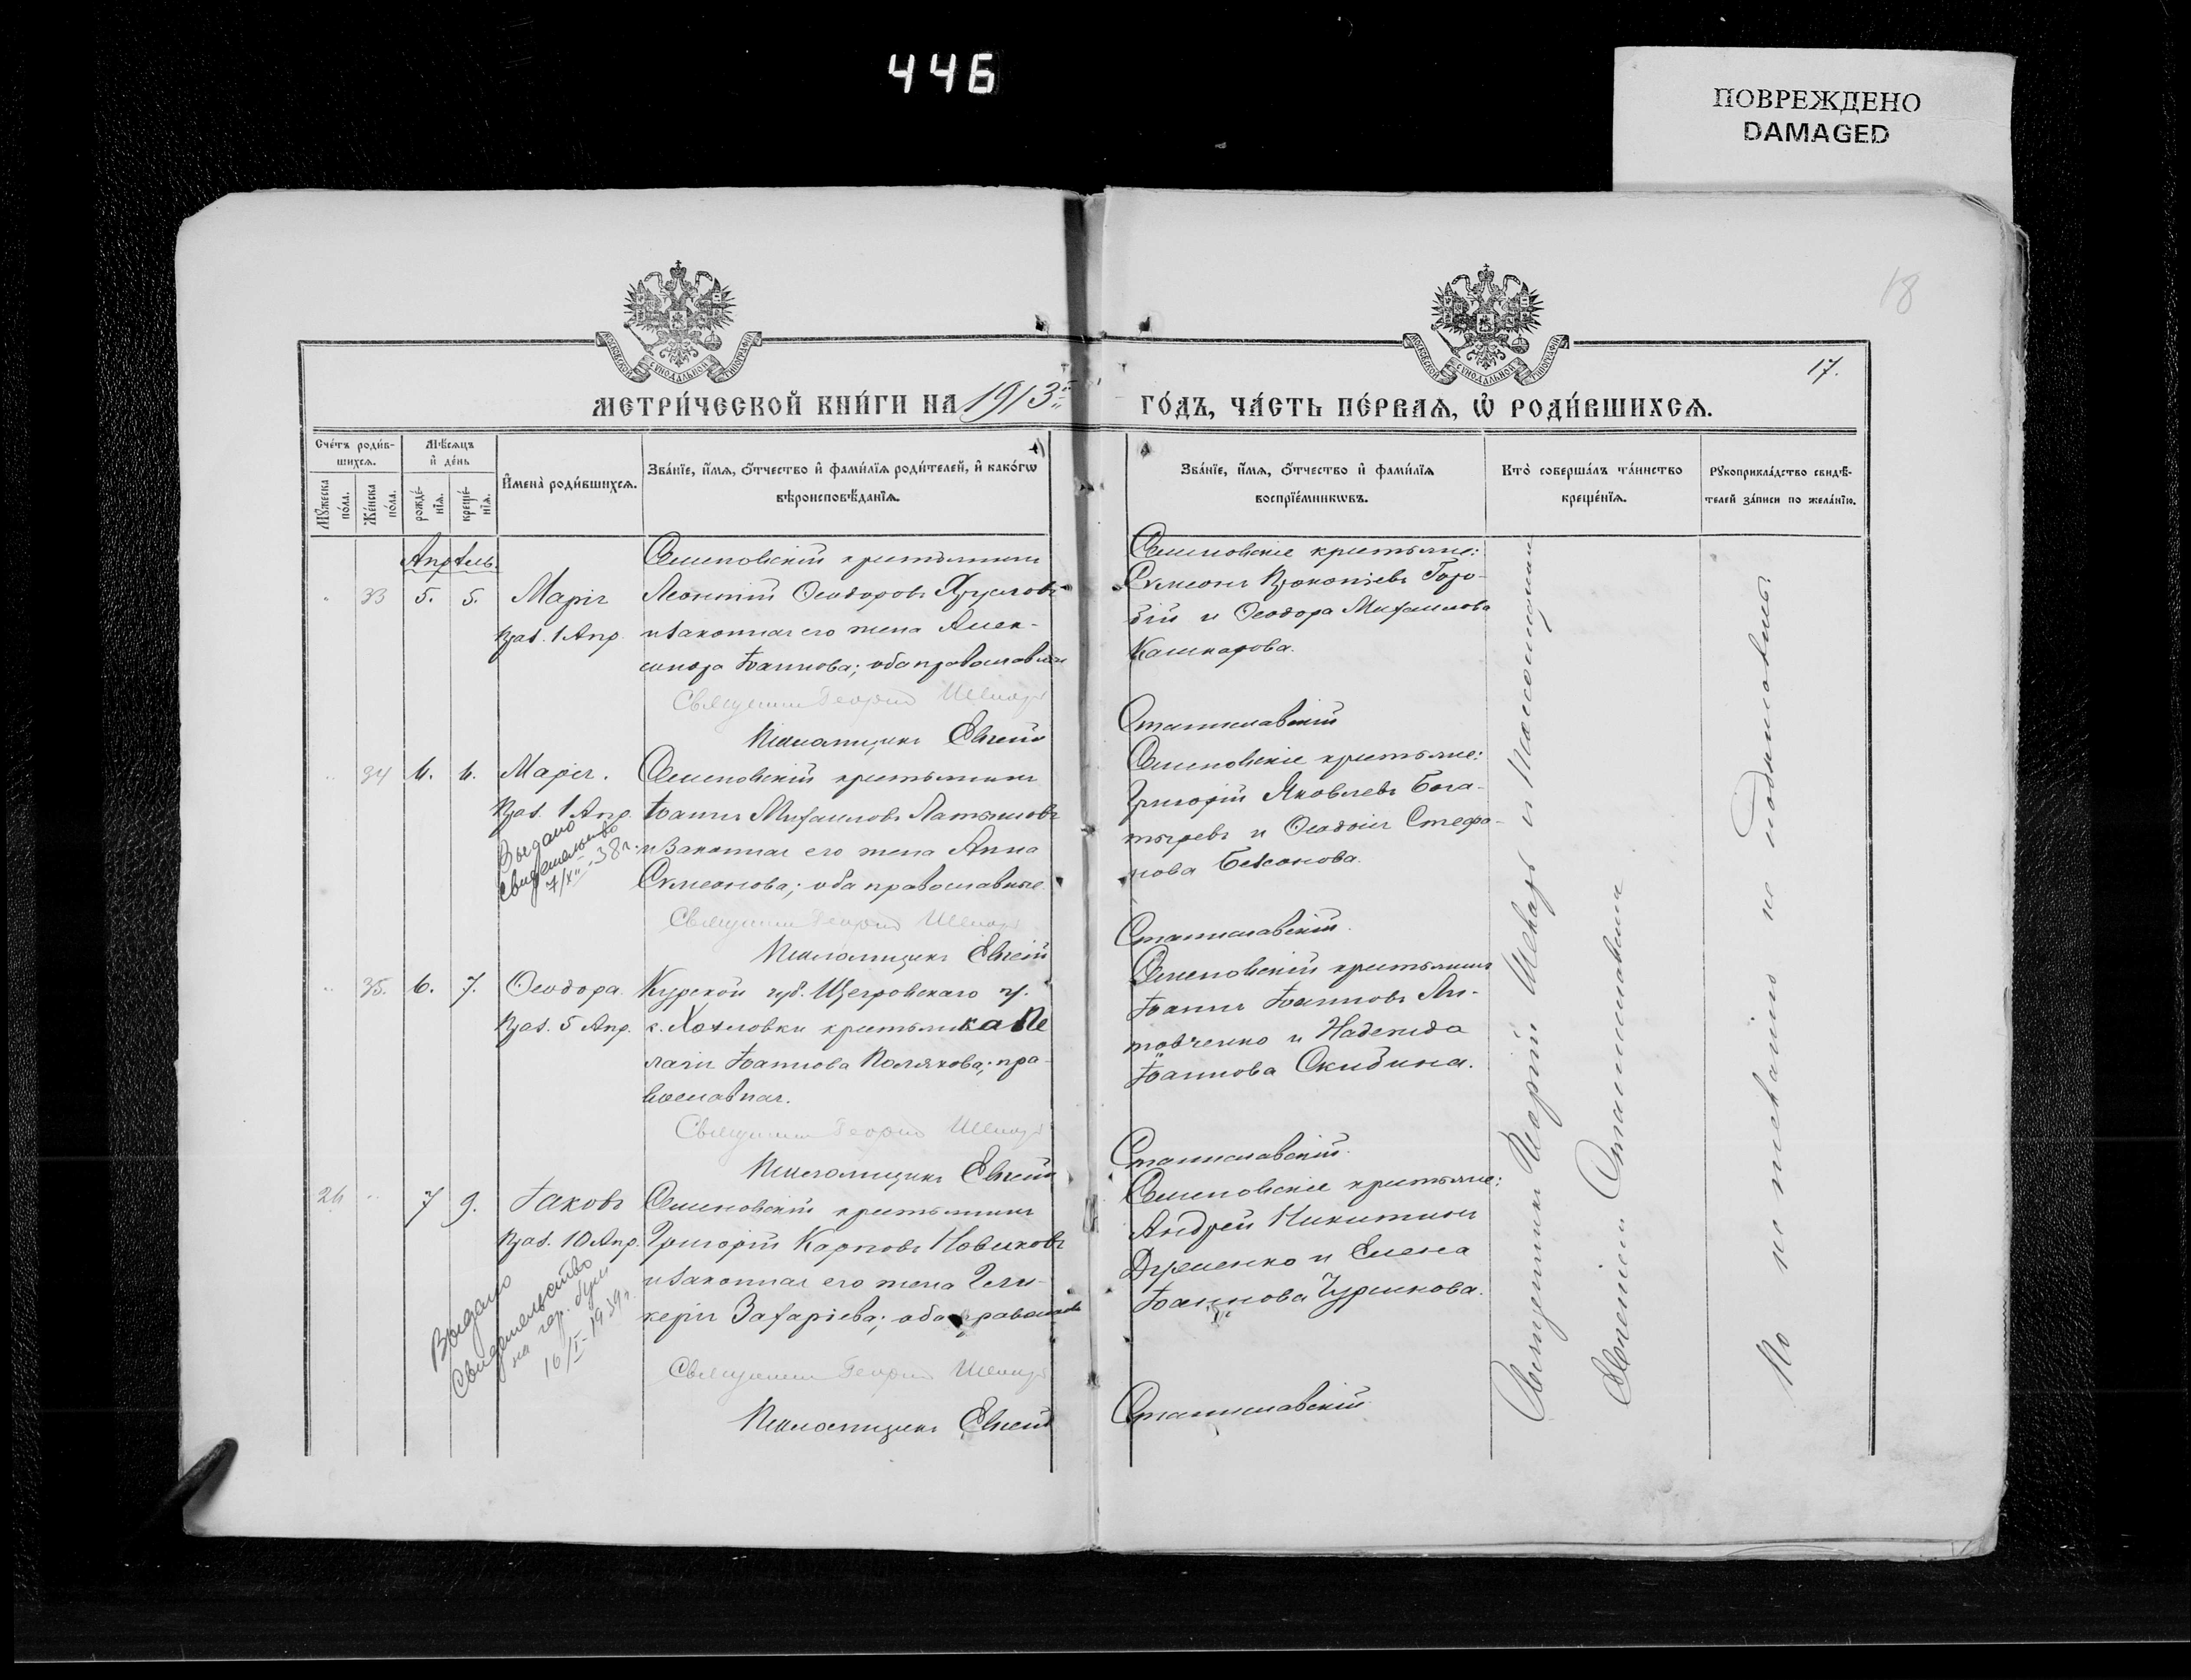 446
ПОВРЕЖДЕНО
DAMAGED
18
17.
МЕТРИ́ЧЕСКОЙ КНИ́ГИ НА 1913й
ГО́ДЪ, ЧА́СТЬ ПЕ́РВАѦ, Ѡ҆ РОДИ́ВШИХСѦ.
Сче́тъ роди́в-
шихсѧ.
Мꙋ́жеска по́ла.
Же́нска по́ла.
Мѣ́сѧцъ
и҆ де́нь
рожде́-
нїѧ.
креще́-
нїѧ.
И҆мена̀ роди́вшихсѧ.
Зва́нїе, и҆́мѧ, ѻ҆́тчество и҆ фами́лїѧ роди́телей, и҆ како́гѡ
вѣроисповѣ́данїѧ.
Зва́нїе, и҆́мѧ, ѻ҆́тчество и҆ фами́лїѧ
воспрїе́мникѡвъ.
Кто̀ соверша́лъ та́инство
креще́нїѧ.
Рꙋкоприкла́дство свидѣ́-
телей за́писи по жела́нїю.
Апрѣль.
33 5. 5. Марія
Праз. 1 Апр.
Семеновскій крестьянинъ
Леонтій Ѳеодоровъ Хрусловъ
и законная его жена Алек-
сандра Іоаннова; оба православные
Священникъ Георгій Шекарь
Псаломщикъ Евгеній
Семеновскіе крестьяне:
Сѵмеонъ Прокопіевъ Горо-
бій и Ѳеодора Михаилова
Кашкарова.
Станиславскій
34 6. 6. Марія.
Праз. 1 Апр.
Выдано
свидетельство
7/XII 38 г.
Семеновскій крестьянинъ
Іоаннъ Михаиловъ Латышовъ
и законная его жена Анна
Сѵмеонова; оба православные
Священникъ Георгій Шекарь
Псаломщикъ Евгеній
Семеновскіе крестьяне:
Григорій Яковлевъ Бога-
тыревъ и Ѳеодосія Стефа-
нова
Станиславскій.
35. 6. 7. Ѳеодора.
Праз. 5 Апр.
Курской губ. Щегровскаго у.
с. Хохловки крестьянка Пе
лагія Іоаннова Полякова; пра-
вославная.
Священникъ Георгій Шекарь
Псаломщикъ Евгеній
Семеновскій крестьянинъ
Іоаннъ Іоанновъ Ли-
товченко и Надежда
Іоаннова Скибина.
Станиславскій.
26 7 9. Іаковъ
Праз. 10 Апр.
Выдано
Свидетельство
16/I-1939 г.
Семеновскій крестьянинъ
Григорій Карповъ Новиковъ
и законная его жена Гли-
керія Захаріева; оба православн
Священникъ Георгій Шекарь
Псаломщикъ Евгеній
Семеновскіе крестьяне:
Андрей Никитинъ
Еременко и Елена
Іоаннова Чурикова.
Станиславскій
Священникъ Георгій Шекарь и псаломщикъ
Евгеній Станиславскій
По не желанію не подписались